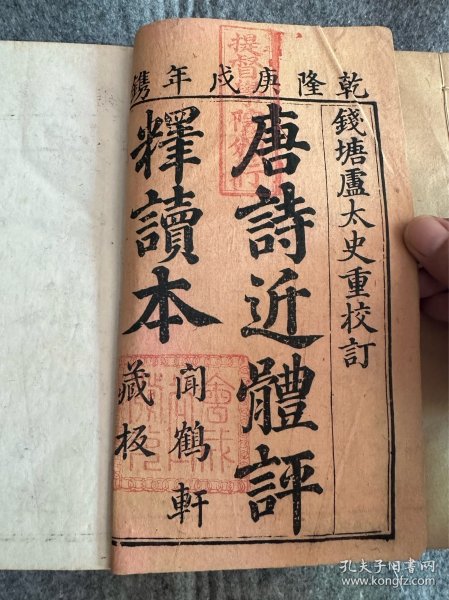 乾隆庚戌年鐫
錢塘盧太史重校訂
唐詩近體評
釋讀本
聞鶴軒
藏板
提督
孔夫子旧书网
www.kongfz.com